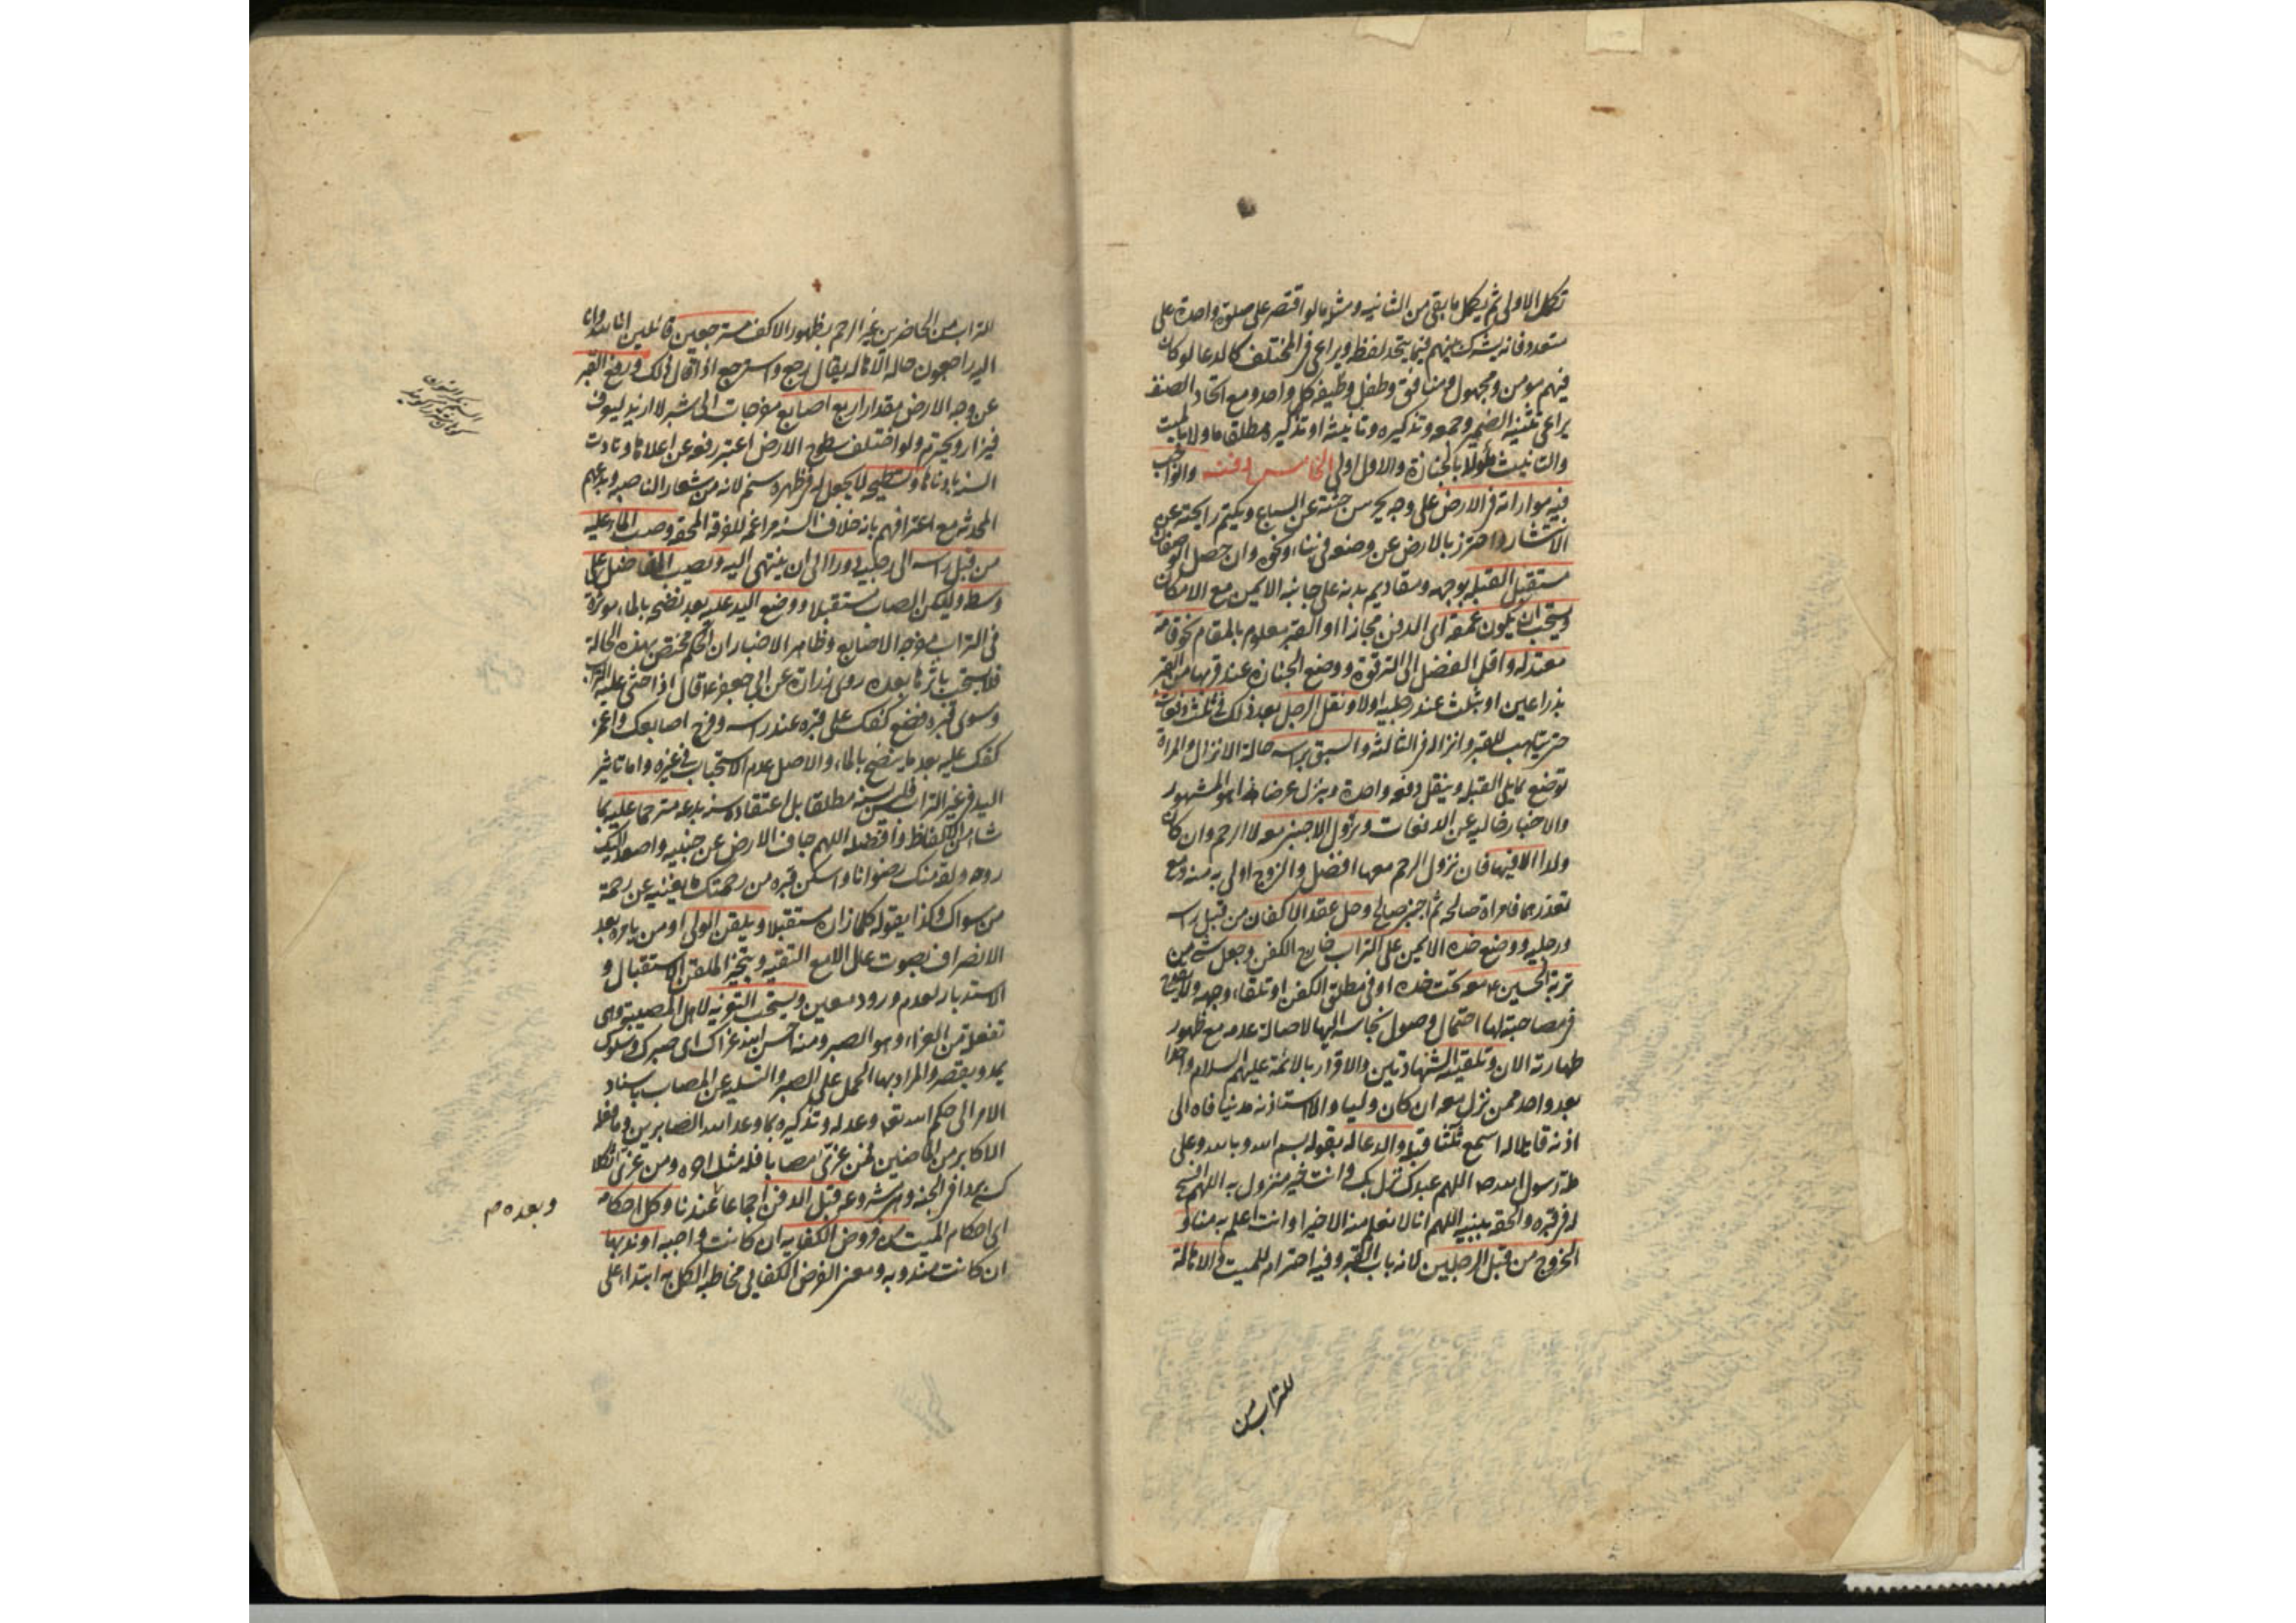 تكمل الاولى ثم يكمل ما بقى من الثانيه ومثله ما لو اقتصر على صلوة واحدة على
متعدد فانه يشرك بينهم فيما يتحد لفظه ويراعى فى المختلف كالدعا لو كان
فيهم مومن ومجهول ومنافق وطفل وظيفه كل واحد ومع اتحاد الصنف
يراعى تثنيه الضمير وجمعه وتذكيره وتانيثه او تذكيره مطلقا ماولا بالميت
والتانيث ماولا بالجنازة والاول اولى الخامس دفنه والواجب
فيه مواراته فى الارض على وجه يحرس جثته عن السباع ويكتم رايحته عن
الانتشار واحترز بالارض عن وضعه فى بناء ونحوه وان حصل الوصفان
مستقبل القبله بوجهه ومقاديم بدنه على جانبه الايمن مع الامكان
ويستحب ان يكون عمقه اى الدفن مجازا او القبر معلوم بالمقام نحو قامه
معتدله واقل الفضل الى الترقوة ووضع الجنازة عند قربها من القبر
بذراعين او بثلث عند رجليه اولا ونقل الرجل بعد ذلك فى ثلث دفعات
حتى يتاهب للقبر وانزاله فى الثالثه والسبق براسه حالة الانزال والمراة
توضع مما يلى القبله وينقل دفعه واحدة وينزل عرضا هذا هو المشهور
والاخبار خاليه عن الدفعات ونزول الاجنبى معه لا الرحم وان كان
ولدا الا فيها فان نزول الرحم معها افضل والزوج اولى به منه ومع
تعذرهما فامراة صالحه ثم اجنبى صالح وحل عقد الاكفان من قبل راسه
ورجليه ووضع خده الايمن على التراب خارج الكفن وجعل شئ من
تربة الحسين ع معه تحت خده او فى مطلق الكفن او تلقاء وجهه ولا يقدح
فى مصاحبته لها احتمال وصول نجاسه اليها لاصالة عدمه مع ظهور
طهارته الان وتلقينه الشهادتين والاقرار بالائمة عليهم السلام واحدا
بعد واحد ممن نزل معه ان كان وليا والا استاذنه مدنيا فاه الى
اذنه قايلا له اسمع ثلثا قبله والدعا له بقوله بسم الله وبالله وعلى
ملة رسول الله ص اللهم عبدك نزل بك وانت خير منزول به اللهم افسح
له فى قبره والحقه بنبيه اللهم انا لا نعلم منه الا خيرا وانت اعلم به منا و
الخروج من قبل الرجلين لانه باب القبر وفيه احترام للميت والاهالة
للتراب من
التراب من الحاضرين غير الرحم بظهور الاكف مسترجعين قائلين انا لله وانا
اليه راجعون حالة الاهاله يقال رجع واسترجع اذا قال ذلك ورفع القبر
عن وجه الارض مقدار اربع اصابع مفرجات الى شبر لا ازيد ليعرف
فيزار ويحترم ولو اختلف سطوح الارض اعتبر رفعه عن اعلاها وتادت
السنه بادناها وتسطيحه لا يجعل له فى ظهره سنم لانه من شعار الناصبه وبدعهم
المحدثه مع اعترافهم بانه خلاف السنه مراغمه للفرقه المحقه وصب الماء عليه
من قبل راسه الى رجليه دورا الى ان ينتهى اليه ويصب الفاضل على
وسطه وليكن الصاب مستقبلا ووضع اليد عليه بعد نضحه بالماء موثرة
فى التراب مفرجه الاصابع وظاهر الاخبار ان الحكم مختص بهذه الحالة
فلا يستحب تاثرها بعده روى زرارة عن ابى جعفر ع قال اذا حثى عليه التراب
وسوى قبره فضع كفك على قبره عند راسه وفرج اصابعك واغمز
كفك عليه بعد ما ينضح بالماء والاصل عدم الاستحباب فى غيره واما تاثير
اليد فى غير التراب فليس بسنه مطلقا بل اعتقاده سنه بدعه مترحما عليه بما
شاء من الالفاظ وافضله اللهم جاف الارض عن جنبيه واصعد اليك
روحه ولقه منك رضوانا واسكن قبره من رحمتك ما يغنيه عن رحمة
من سواك وكذا يقوله كلما زاره مستقبلا ويلقن الولى او من يامره بعد
الانصراف بصوت عال الا مع التقيه ويتخير الملقن الاستقبال و
الاستدبار لعدم ورود معين ويستحب التعزيه لاهل المصيبه وهى
تفعله من العزاء وهو الصبر ومنه احسن الله عزاك اى صبرك وسلوك
يمد ويقصر والمراد بها الحمل على الصبر والتسليه عن المصاب باسناد
الامر الى حكم الله تع وعدله وتذكيره بما وعد الله الصابرين وما فعله
الاكابر من الماضين فمن عزى مصابا فله مثل اجره ومن عزى ثكلا
كسى بردا فى الجنه وهى مشروعه قبل الدفن اجماعا عندنا وكل احكامه
وبعده م
اى احكام الميت من فروض الكفايه ان كانت واجبه او ندبها
ان كانت مندوبه ومعنى الفرض الكفائى مخاطبه الكل به ابتداء على